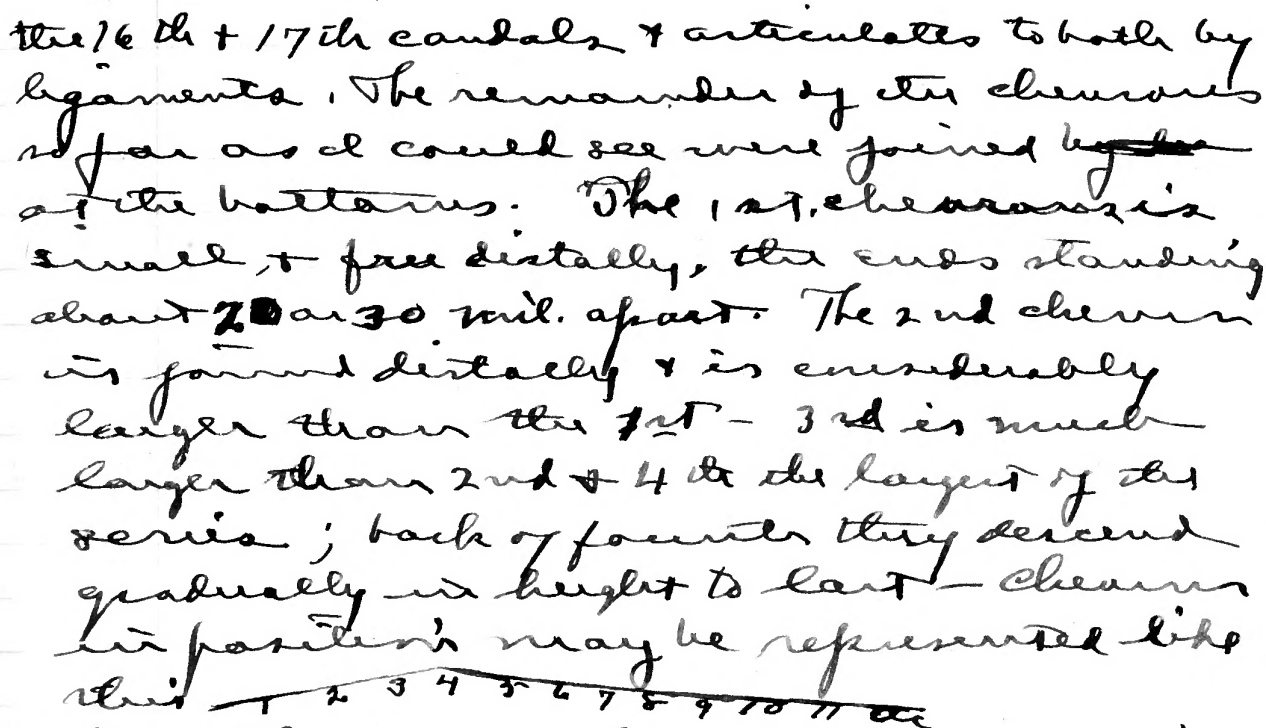 the 16th + 17th caudals & articulates to both by
ligaments. The remainder of the chevrons
so far as I could see were joined
at the bottoms. The 1st. chevrons is
small, + free distally, the ends standing
about 20 or 30 mil. apart. The 2nd chevron
is joined distally & is considerably
larger than the 1st – 3rd is much
larger than 2nd & 4th the largest of the
series; back of fourth they descend
gradually in height to last – chevrons
in position may be represented like
this 1 2 3 4 5 6 7 8 9 10 11